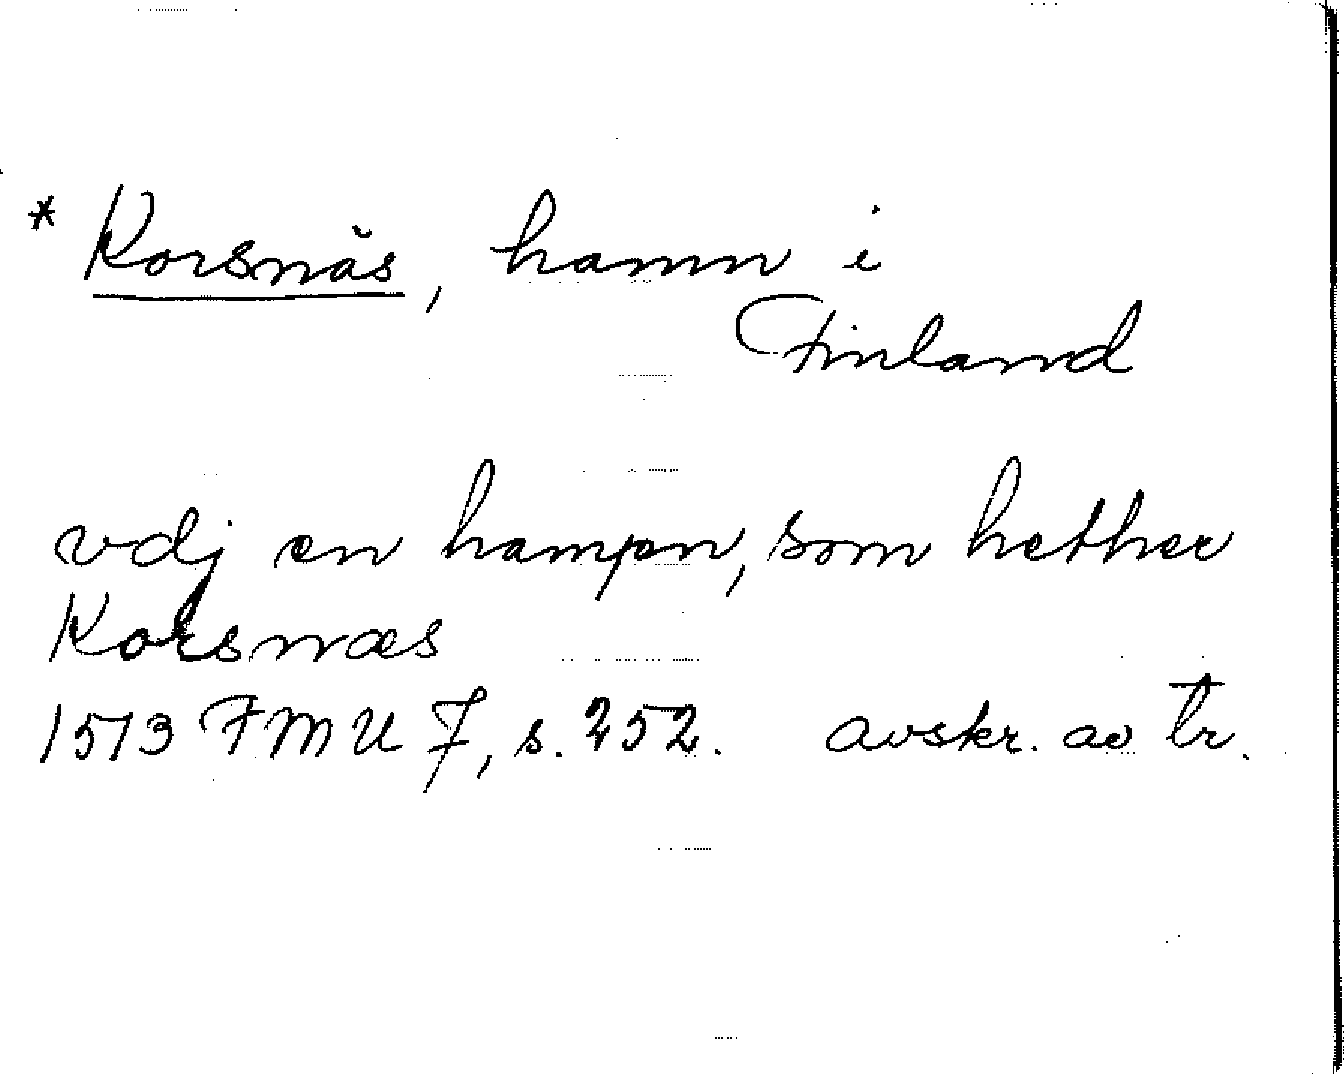 * Korsnäs, hamn i
Finland
vdj en hampn, som hether
Korsnæs
1513 FMU 7, s. 252. avskr. av tr.